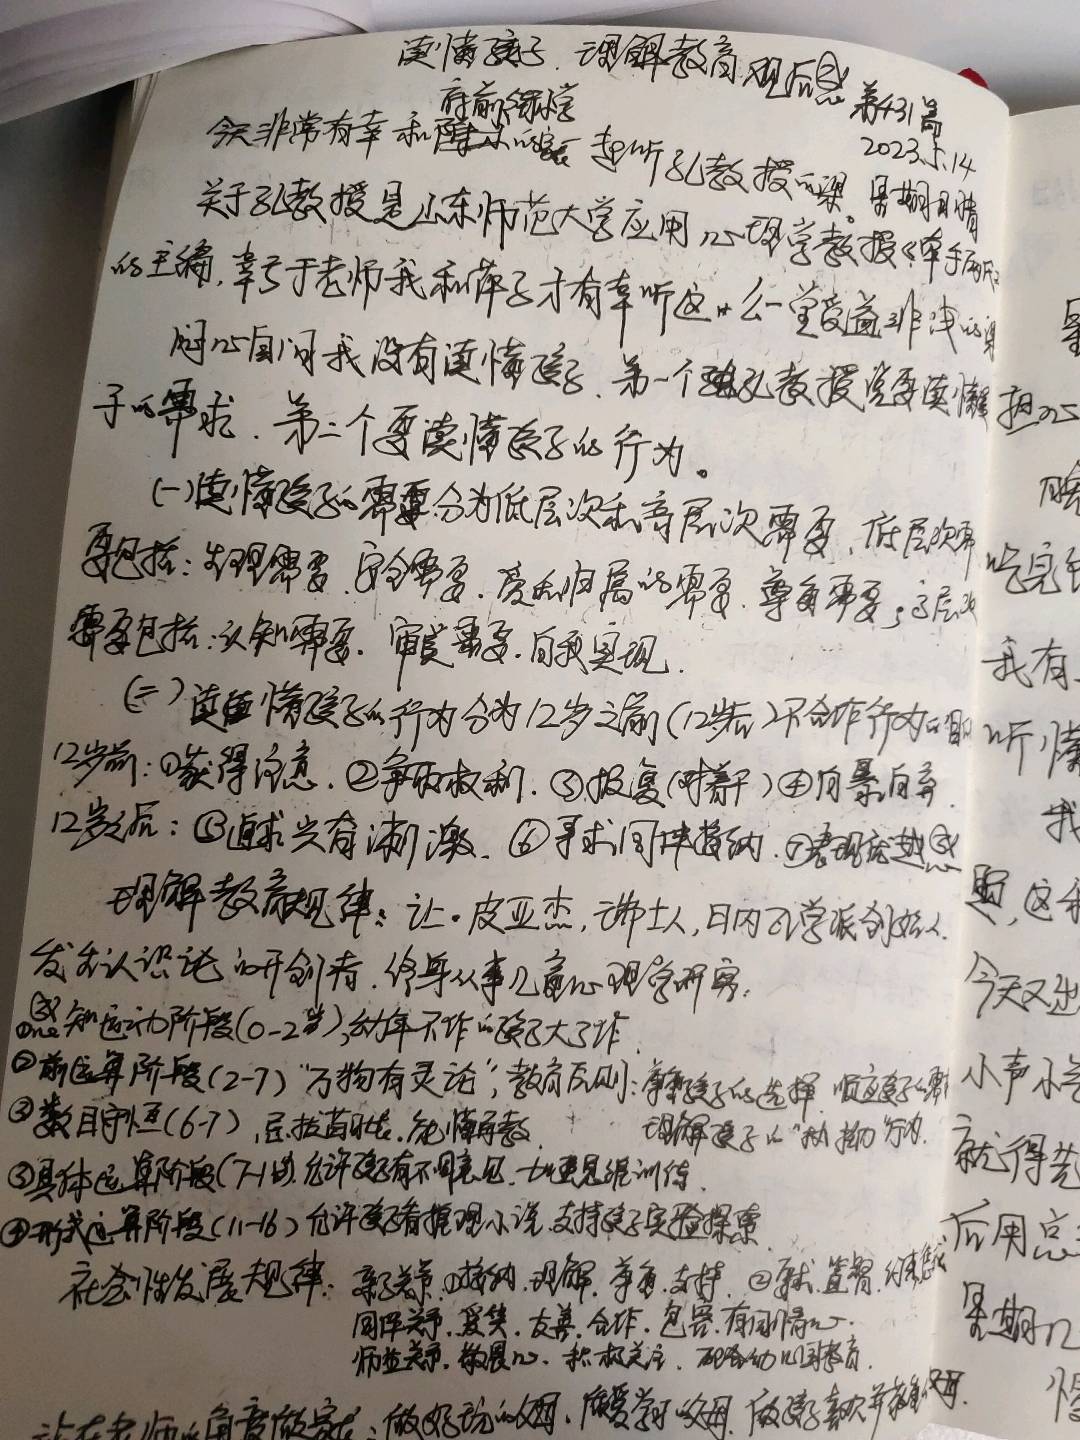 读懂孩子.理解教育观后感 第431篇
府前街小学 2023.5.14
今天非常有幸和 的家长一起听孔教授的课。星期日晴
关于孔教授是山东师范大学应用心理学教授《牵手两代》
的主编,幸亏于老师我和萍子才有幸听这么一堂受益非浅的课
问心自问我没有读懂孩子.第一个 孔教授 要读懂孩
子的需求.第二个要读懂孩子的行为。
(一)读懂孩子的需要分为低层次和高层次需要.低层次需
要包括:生理需要.安全需要.爱和归属的需要.尊重需要;高层次
需要包括:认知需要.审美需要.自我实现.
(二)读懂孩子的行为分为12岁之前(12岁后)不合作行为的目的
12岁前:①获得注意.②争取权利.③报复(对着干)④自暴自弃.
12岁之后:⑤追求兴奋刺激.⑥寻求同伴接纳.⑦表现优越感
理解教育规律:让·皮亚杰,瑞士人,日内瓦学派创始人.
发生认识论的开创者.终身从事儿童心理学研究:
感知运动阶段(0-2岁),幼年不作的孩子大了作.
②前运算阶段(2-7)"万物有灵论",教育原则:尊重孩子的选择.顺应孩子的需
③数目守恒(6-7), 拔苗助长. 懂再教. 理解孩子的"执拗"行为.
③具体运算阶段(7-11岁).允许孩子有不同意见. 思维训练.
④形式运算阶段(11-16)允许孩子看推理小说.支持孩子实验探索
社会性发展规律:亲子关系.①接纳.理解.尊重.支持.②要求.监督.约束
同伴关系.爱笑.友善.合作.包容.有同情心.
师生关系.敬畏心.积极关注. 幼儿园教育.
站在老师的角度做家长:做好玩的父母.做爱学习的父母.做孩子喜欢并 父母.
担心
吃完
我有
听懂
我
题,这
今天又
小声
就得
应用
星期